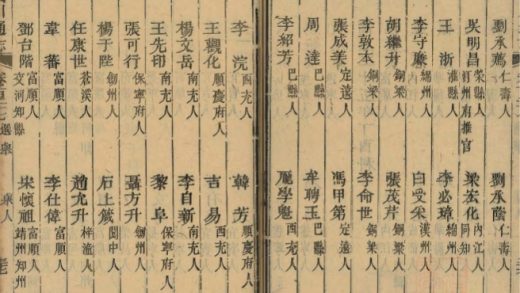 劉永薦 仁壽人 劉永蔭 仁壽人
吳明昌 榮縣人汀州府推官 梁宏化 內江人同知
王浙 縣人 李必璋 綿州人
李守廉 綿州人 白受采 漢州人
胡繼升 銅梁人 張茂芹 銅梁人
李敦本 銅梁人 李命世 銅梁人
張成美 定遠人 馮甲第 定遠人
周達 巴縣人 牟聘玉 巴縣人
李紹芳 巴縣人 龐學魁 西充人
李浣 西充人 韓芳 順慶府人
王觀化 順慶府人 吉易 西充人
楊文岳 南充人 李自新 南充人
王先印 南充人 黎阜 保寧府人
張可行 保寧府人 聶方升 劍州人
楊于陛 劍州人 石上 閬中人
任康世 蒼溪人 趙允升 梓潼人
韋蕃 富順人 李仕偉 富順人
鄧台階 富順人交河知縣 宋慎祖 富順人靖州知州
通志 卷 選舉 舉人